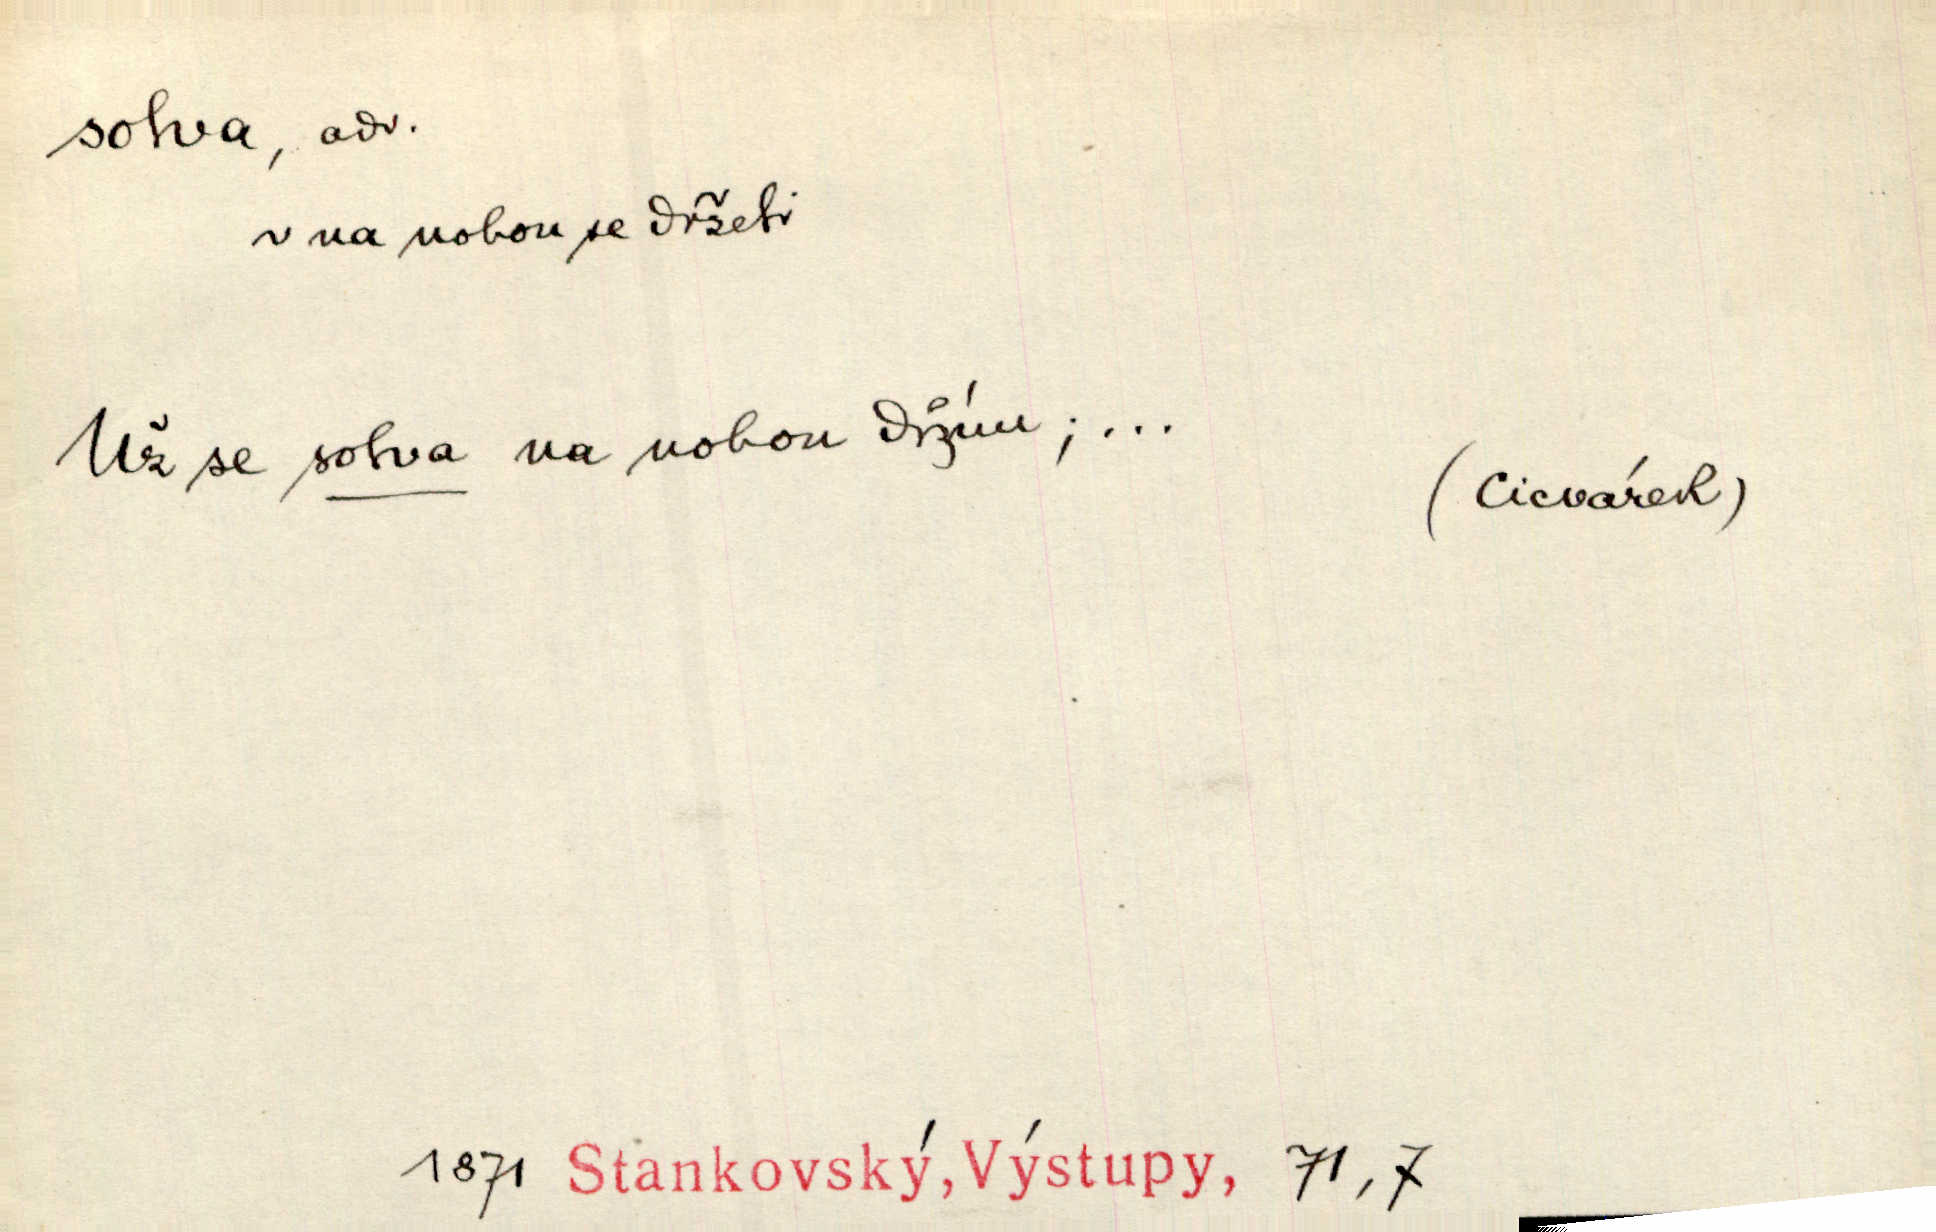 sotva, adv.
v na nohou se držeti
Už se sotva na nohou držím; ...
(Cicvárek)
1871 Stankovský, Výstupy, 71, 7